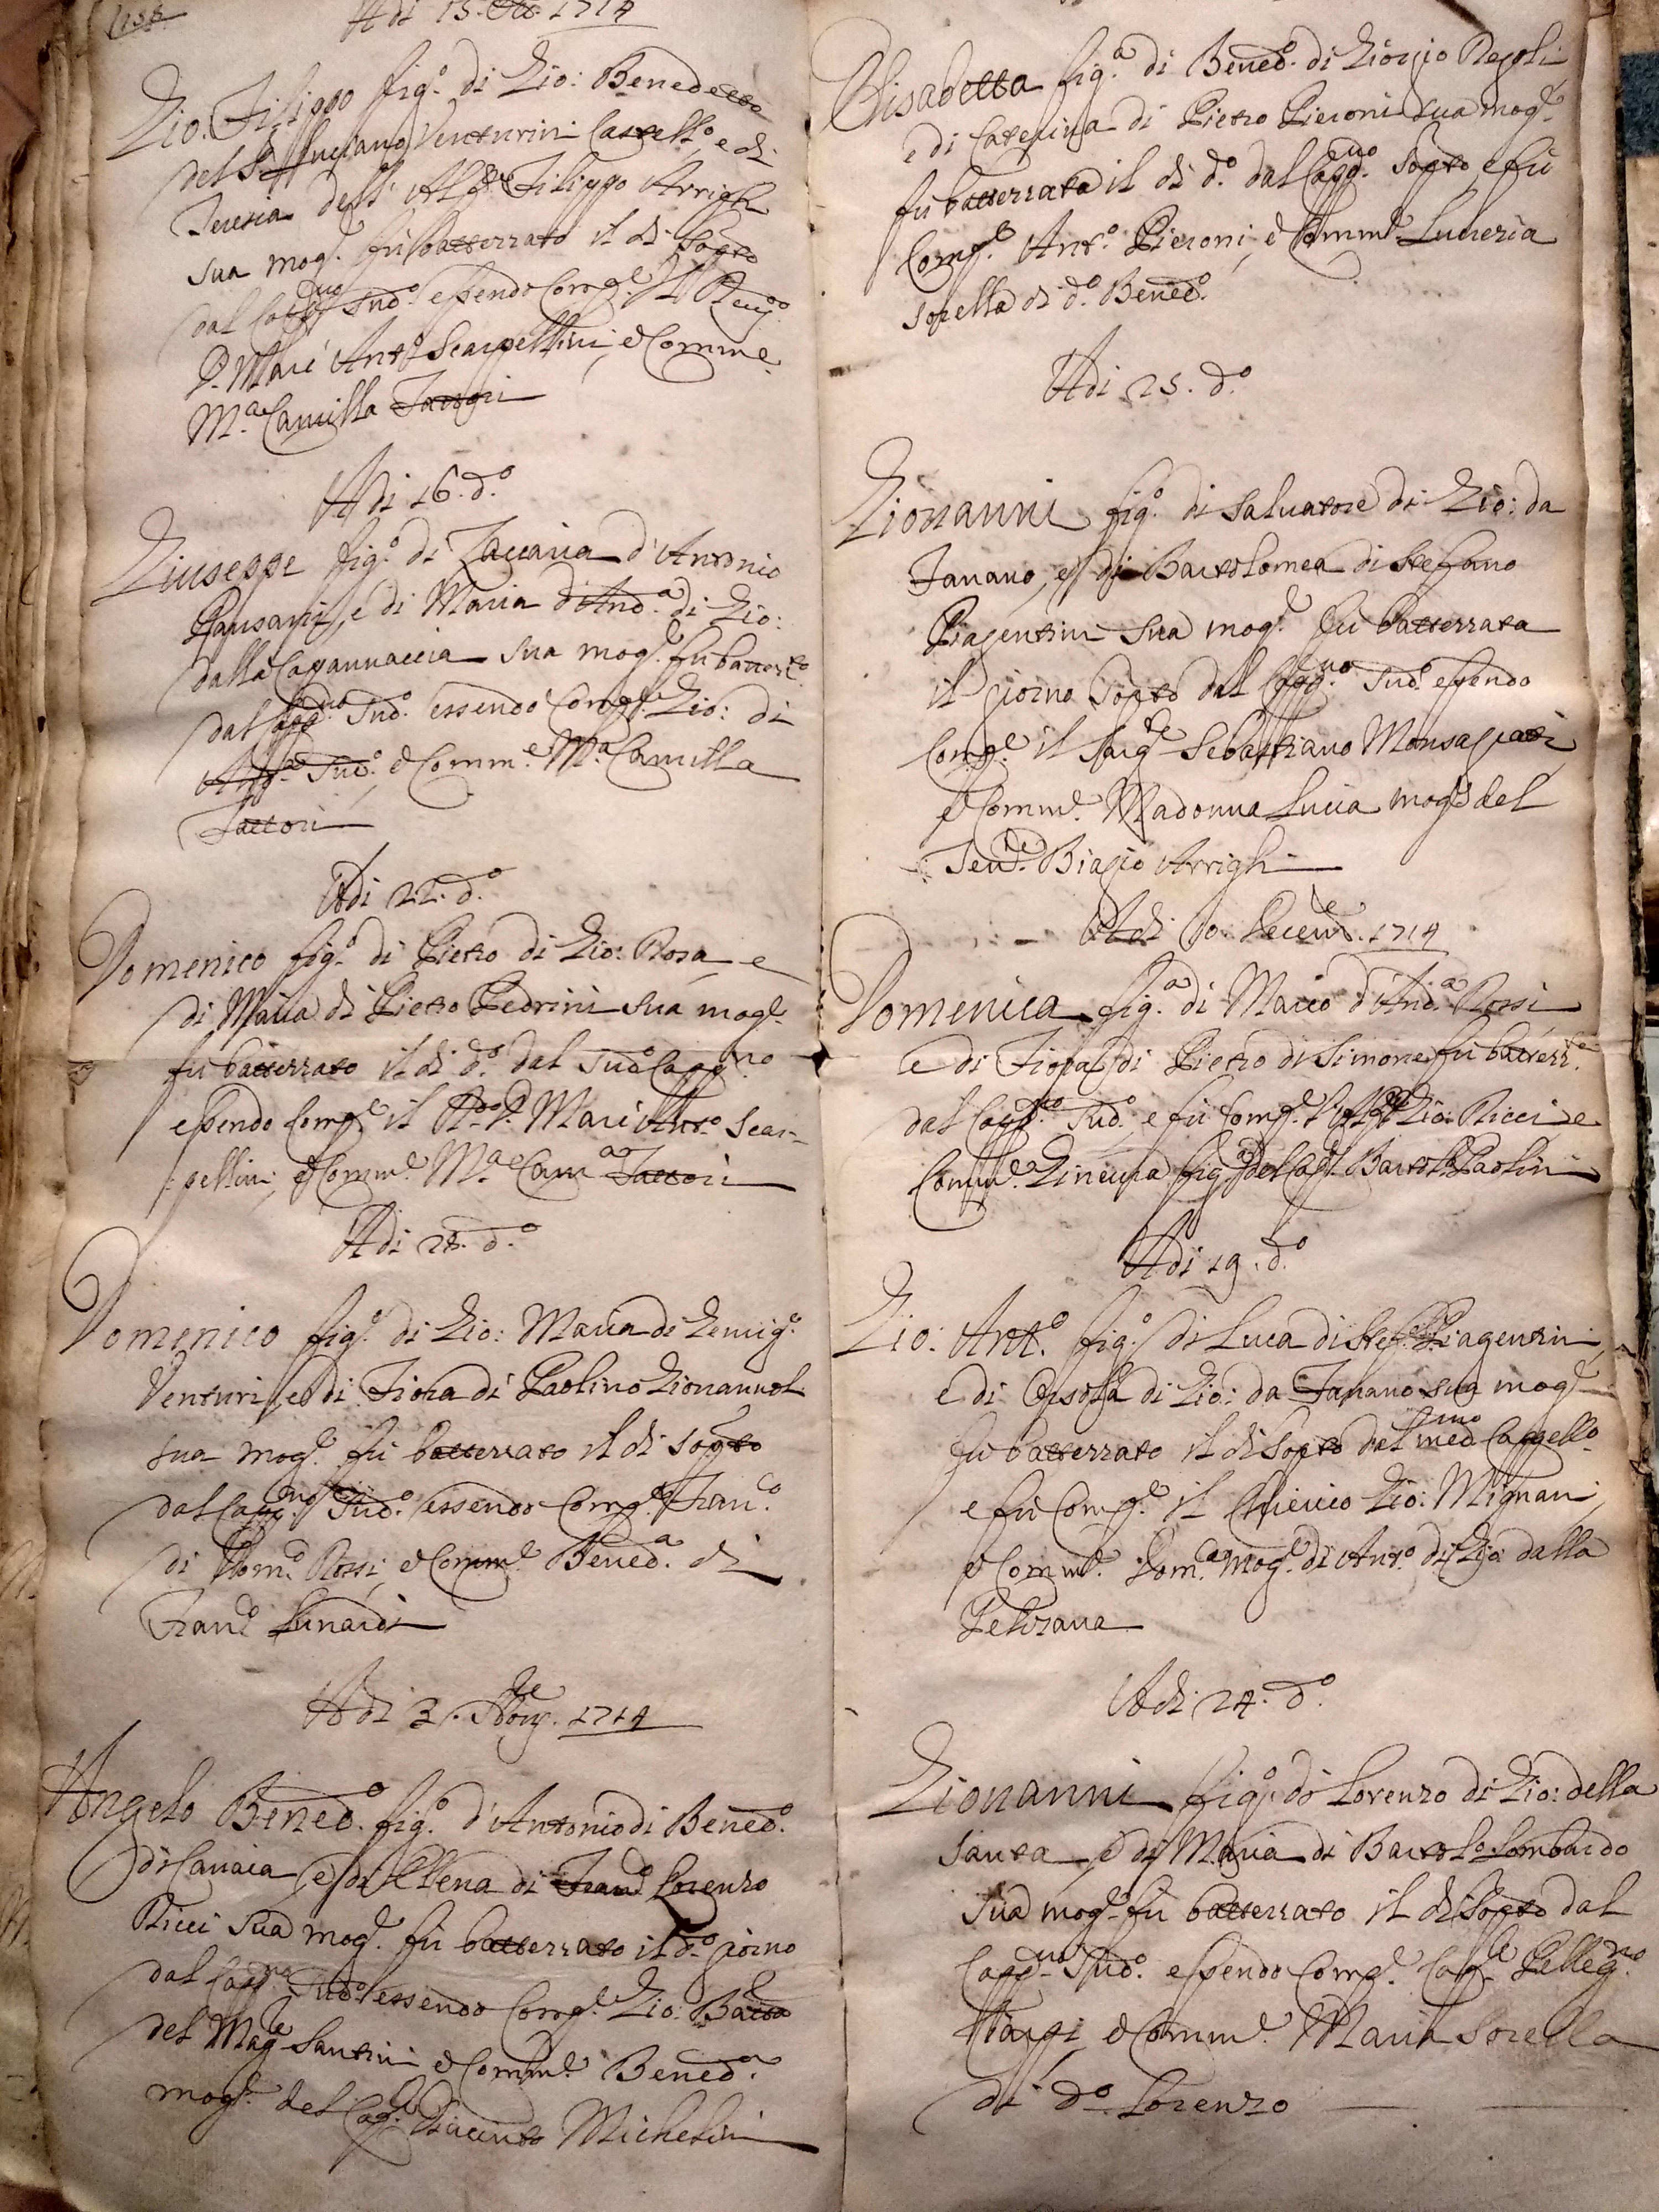 Adi 15. Ott. 1714
Gio: Filippo fig.o di Gio: Benedetto
del Luciano Venturini Castell.o e di
Teresia dell' Alf.re Filippo Arrighi
sua mog.e fù battezzato il di sop.to
dal Capp.no Sud.o essendo Comp.e Il R
P. Marc' Ant.o Scarpellini, e Comm.e
M.a Camilla Fattori
Adi 16. d.o
Giuseppe fig.o di Zaccaria d'Antonio
Pansani, e di Maria d'And.a di Gio:
dalla Capannaccia sua mog.e fù battezz.to
dal Capp.no Sud.o essendo Comp.e Gio: di
Sud.o e Comm.e M.a Camilla
Fattori
Adi 22. d.o
Domenico fig.o di Pietro di Gio: Rosa e
di Maria di Pietro Pedrini sua mog.e
fù battezzato il di d.o dal Sud.o Capp.no
essendo Comp.e il R.do P. Marc' Ant.o Scar-
pellini, e Comm.e M.a Cam.a Fattori
Adi 28. d.o
Domenico fig.o di Gio: Maria di Gemig.o
Venturi, e di Fiora di Paolino Giovannol
sua mog.e fù battezzato il di sop.to
dal Capp.no Sud.o essendo Comp.e Fran.o
di Dom.o Rossi, e Comm.e Bened.a di
Fran.o Lunardi
Adi 3. Nov.e 1714
Angelo Bened.o fig.o d'Antonio di Bened.o
di Canaia, e di Elena di Fran.o Lorenzo
Ricci sua mog.e fù battezzato il d.o giorno
dal Capp.no Sud.o essendo Comp.e Gio: Batta
del Mag.e Santini e Comm.e Bened.a
mog.e del Cap. Giacinto Michelini
Elisabetta fig.a di Bened.o di Giorgio Regoli
e di Caterina di Pietro Pieroni sua mog.e
fù battezzata il di d.o dal Capp.no Sop.to e fù
Comp.e Ant.o Pieroni, e Comm.e Lucrezia
sorella di d.o Bened.o
Adi 25. d.o
Giovanni fig.o di Salvatore di Gio: da
Fanano, e di Bartolomea di Stefano
Piagentini sua mog.e fù battezzata
il giorno Sop.to dal Capp.no Sud.o essendo
Comp.e il Sarg.e Sebastiano Monsagrati
e Comm.e Madonna Lucia mog.e del
Ten.e Biagio Arrighi
Adi 10. Decem.e 1714
Domenica fig.a di Marco d'And.a Rossi
e di Fiora di Pietro di Simone fù battezz.ta
dal Capp.no Sud.o e fù Comp.e l'Alf.re Gio: Ricci e
Comm.e Ginevra fig.a del Cap. Bartol.o Paolini
Adi 19. d.o
Gio: Ant.o fig.o di Luca di Stef.o Piagentini
e di Orsola di Gio: da Fanano sua mog.e
fù battezzato il di Sop.to dal med.mo Cappello.
e fù Comp.e il Chierico Gio: Mignani,
e Comm.e Dom.a mog.e di Ant.o di Gio: dalla
Pelizana
Adi 24. d.o
Giovanni fig.o di Lorenzo di Gio: della
Santa, e di Maria di Bartol.o Lombardo
sua mog.e fù battezzato il di Sop.to dal
Capp.no Sud.o essendo Comp.e Cap.e Pelleg.no
e Comm.e Maria Sorella
di d.o Lorenzo